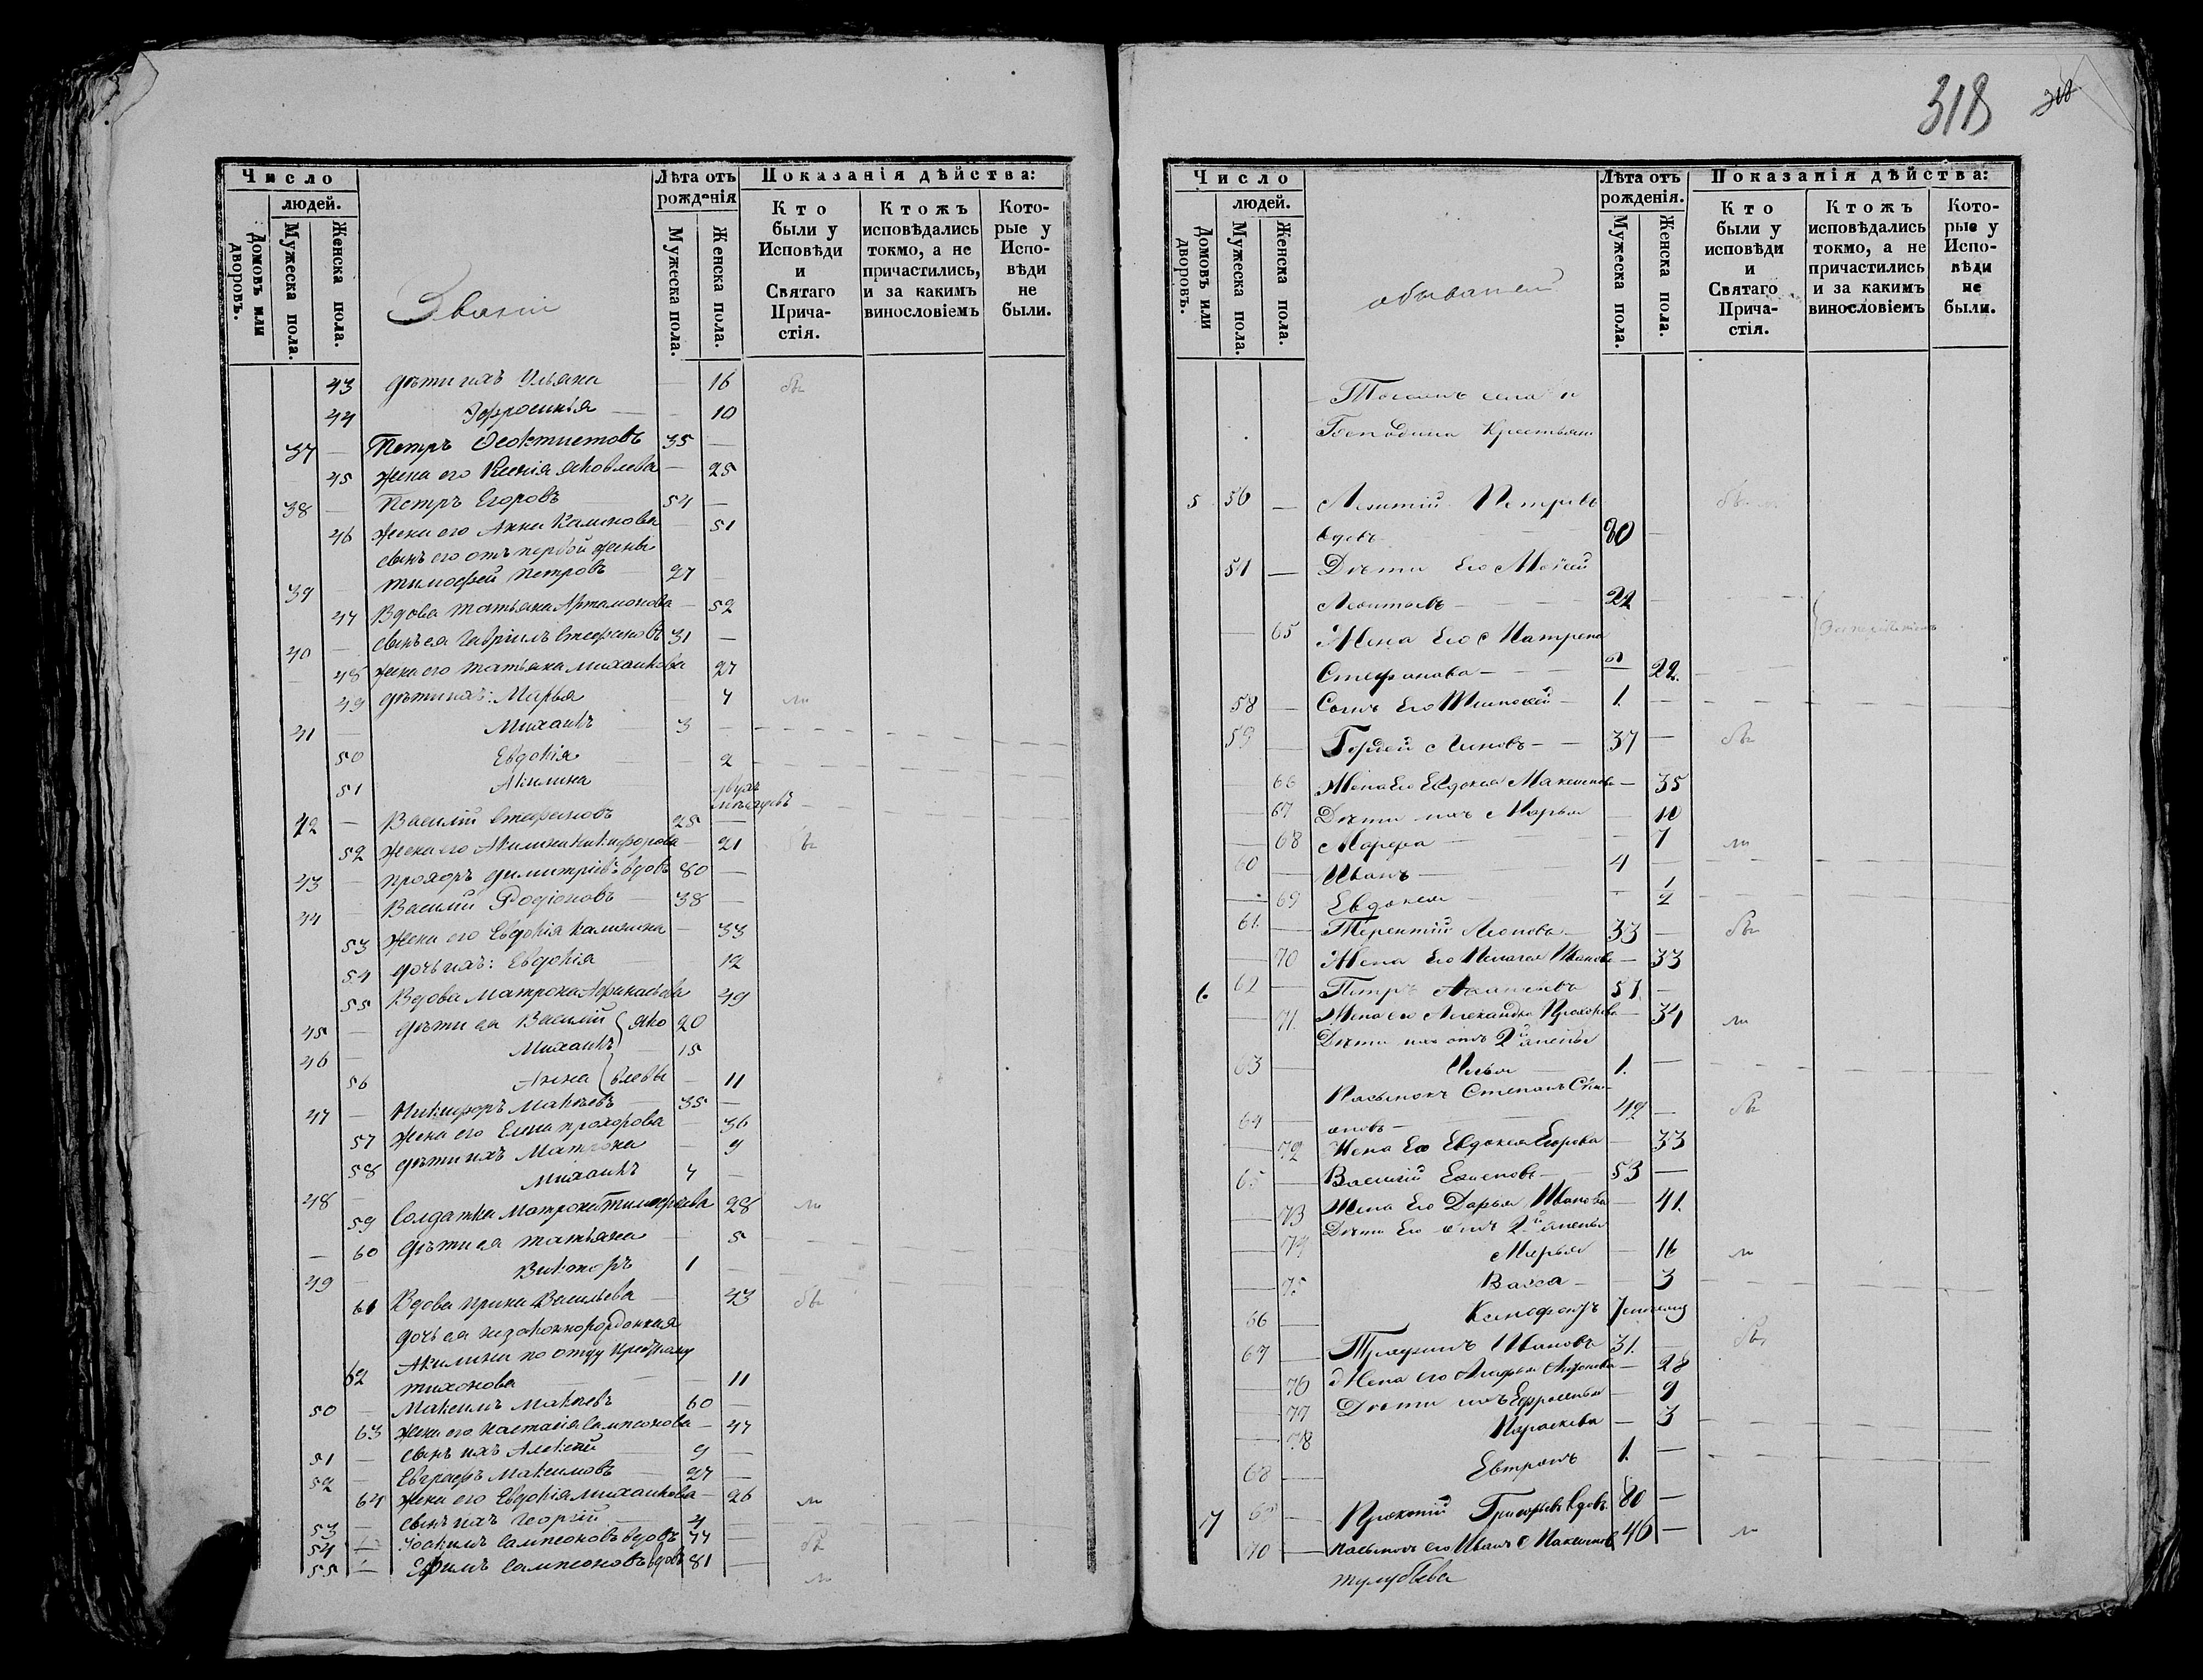 Число
людей.
Домовъ или дворовъ.
Мужеска пола.
Женска пола.
Званіи
Лѣта отъ рожденія
Мужеска пола.
Женска пола.
Показанія дѣйства:
Кто были у Исповѣди и Святаго Прича-стія.
Ктожъ исповѣдались токмо, а не причастились, и за какимъ винословіемъ
Кото-рые у Испо-вѣди не были.
43 дѣти ихъ Ульяна — 16 бы
44 Эфросинья — 10
37 — Петръ Феоктистовъ 35 —
45 жена его Ксенія Яковлева — 25
38 — Петръ Егоровъ 54 —
46 жена его Анна Калинова — 51
сынъ его отъ первой жены
39 — Тимофей Петровъ 27 —
47 Вдова Татьяна Артамонова — 52
40 — сынъ ея Гавріилъ Стефановъ 31 —
48 жена его Татьяна Михайлова 27
49 дѣти ихъ: Марья — 7 ли
41 — Михаилъ 3 —
50 Евдокія — 2
51 Акилина двухъ
мѣсяцевъ
42 — Василій Стефановъ 25 —
52 жена его Акилина Никифорова — 21 бы
43 — Прохоръ Димитріевъ вдовъ 80 —
44 — Василій Родіоновъ 38 —
53 жена его Евдокія Калинина — 33
54 дочь ихъ: Евдокія 12
55 Вдова Матрона Афанасьева 49
45 — дѣти ея Василій Яко 20
46 — Михаилъ 15
56 Анна влевы — 11
47 — Никифоръ Макѣевъ 35 —
57 жена его Елена Прохорова — 36
58 дѣти ихъ Матрона 9
48 — Михаилъ 7 —
59 Солдатка Матрона Тимофеева 28 ли
60 дѣти ея Татьяна — 5
49 — Виктоpъ 1 —
61 Вдова Ирина Васильева 43 бы
дочь ея незаконнорожденная
Акилина по отцу крестному
62 Тихонова — 11
50 — Максимъ Макѣевъ 60 —
63 жена его Настасія Сампсонова — 47
51 — сынъ ихъ Алексѣй 9
52 — Евграфъ Максимовъ 27 —
64 жена его Евдокія Михайлова — 26 ли
53 — сынъ ихъ Георгій 4
54 — Іоакимъ Сампсоновъ вдовъ 77 бы
55 — Ефимъ Сампсоновъ вдовъ 81 — ли
318
318
Число
людей.
Домовъ или дворовъ.
Мужеска пола.
Женска пола.
обывателей
Лѣта отъ рожденія.
Мужеска пола.
Женска пола.
Показанія дѣйства:
Кто были у исповѣди и Святаго Прича-стія.
Ктожъ исповѣдались токмо, а не причастились и за какимъ винословіемъ
Кото-рые у Испо-вѣди не были.
села и
Господина Крестьяне
5 56 — Петровъ
вдовъ 80 —
57 — Дѣти Его Моѵсей
Леонтьевъ — 22 —
65 Жена Его Матрена
Стефанова — 22
58 — Сынъ Его Тимофей 1 —
59 — Гордей 37 — бы
66 Жена Его Евдокея Максимова — 35
67 Дѣти ихъ Марья — 10
68 Марфа — 7 ли
60 — Иванъ — 4 —
69 Евдокея — 1/2
61 — Терентій Леонова — 33 — бы
70 Жена Его Пелагея Иванова — 33
6 62 — Петръ 51 —
71 Жена ея Александра Прохорова — 34 ли
Дѣти ихъ отъ 2й жены
63 — Илья 1 —
Пасынокъ Степанъ Сѣм-
64 — оновъ — 42 — бы
72 Жена Его Евдокея Егорова — 33
65 — Василій 53 —
73 Жена Его Дарья Иванова — 41
Дѣти Его отъ 2й жены
74 Марья — 16 ли
75 Васса — 3
66 — Ксенофонтъ
67 — Трифонъ Ивановъ 31 — бы
76 Жена его — 28
77 Дѣти ихъ Ефросинья — 9
78 Параскева — 3
68 — Евтропъ 1 —
7 69 — Прокопій Григорьевъ вдовъ 80 —
70 — Пасынокъ его Иванъ Максимов 46 — ли